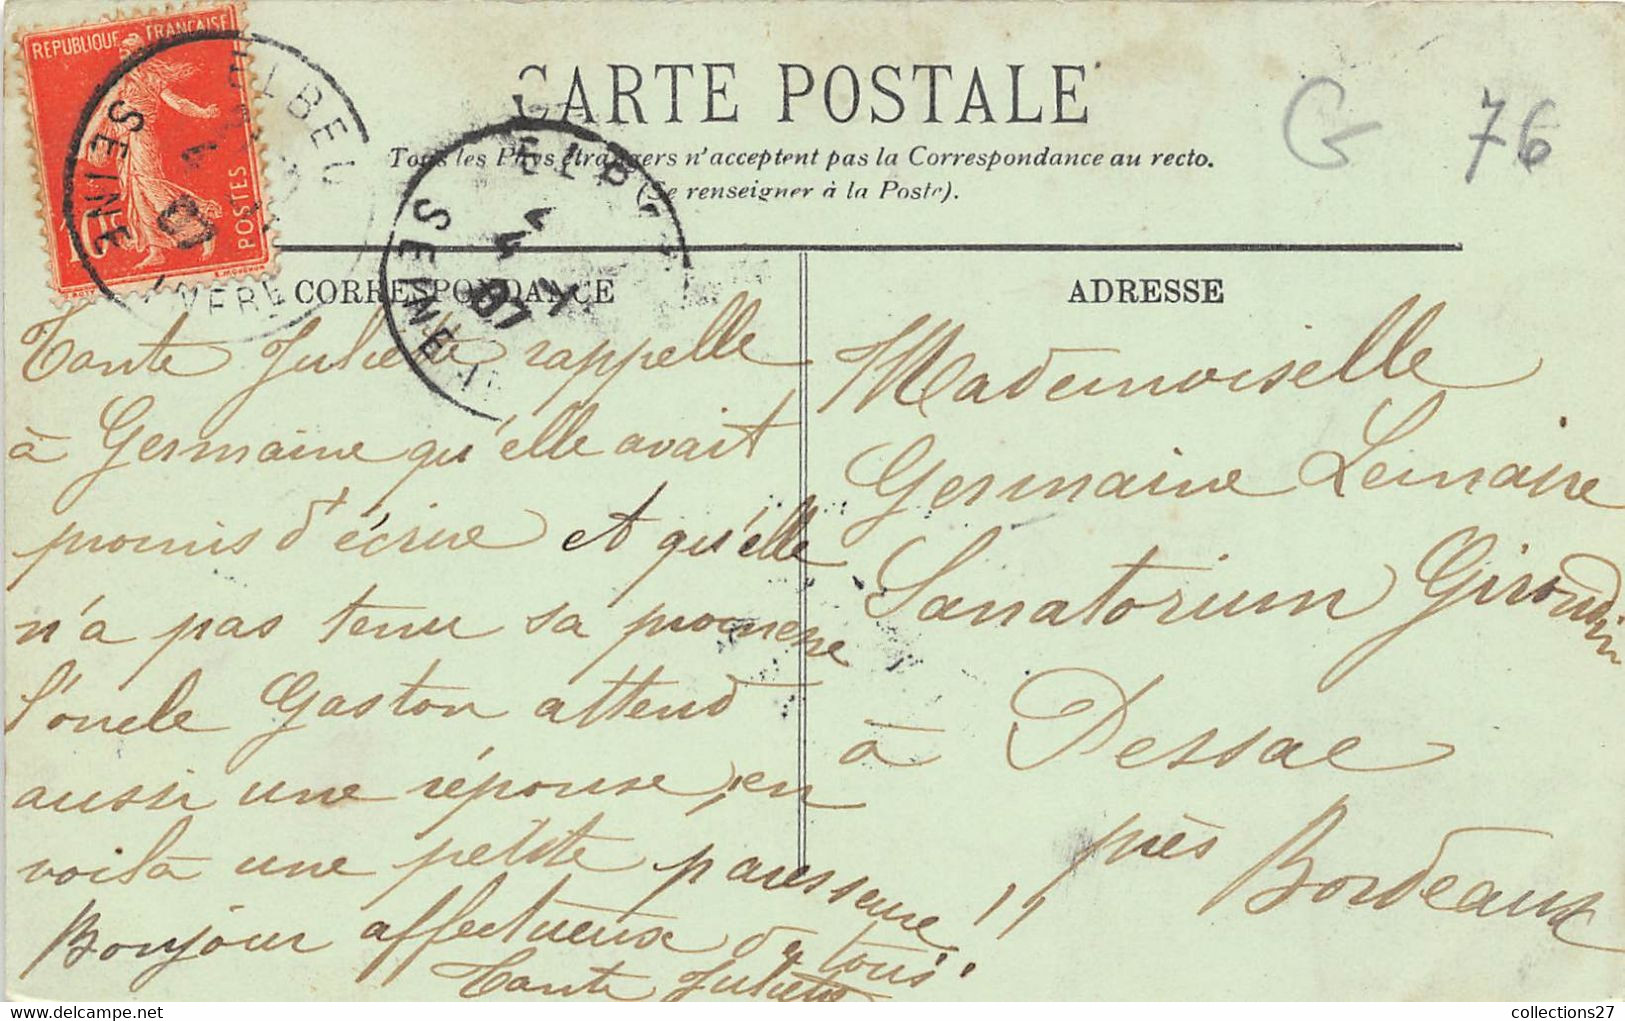 REPUBLIQUE FRANÇAISE
POSTES
ELBEU
SEINE
CARTE POSTALE
G 76
Tous les Pays étrangers n'acceptent pas la Correspondance au recto.
(Se renseigner à la Poste).
ELB
SEINE
4 4
07
CORRESPONDANCE
Tante Juliette rappelle
à Germaine qu'elle avait
promis d'écrire et qu'elle
n'a pas tenu sa promesse
l'oncle Gaston attend
aussi une réponse, en
voilà une petite paresseuse !!
Bonjour affectueux de tous.
Tante Juliette
ADRESSE
Mademoiselle
Germaine Lemaire
Sanatorium Girondin
à Pessac
près
Bordeaux
collections27